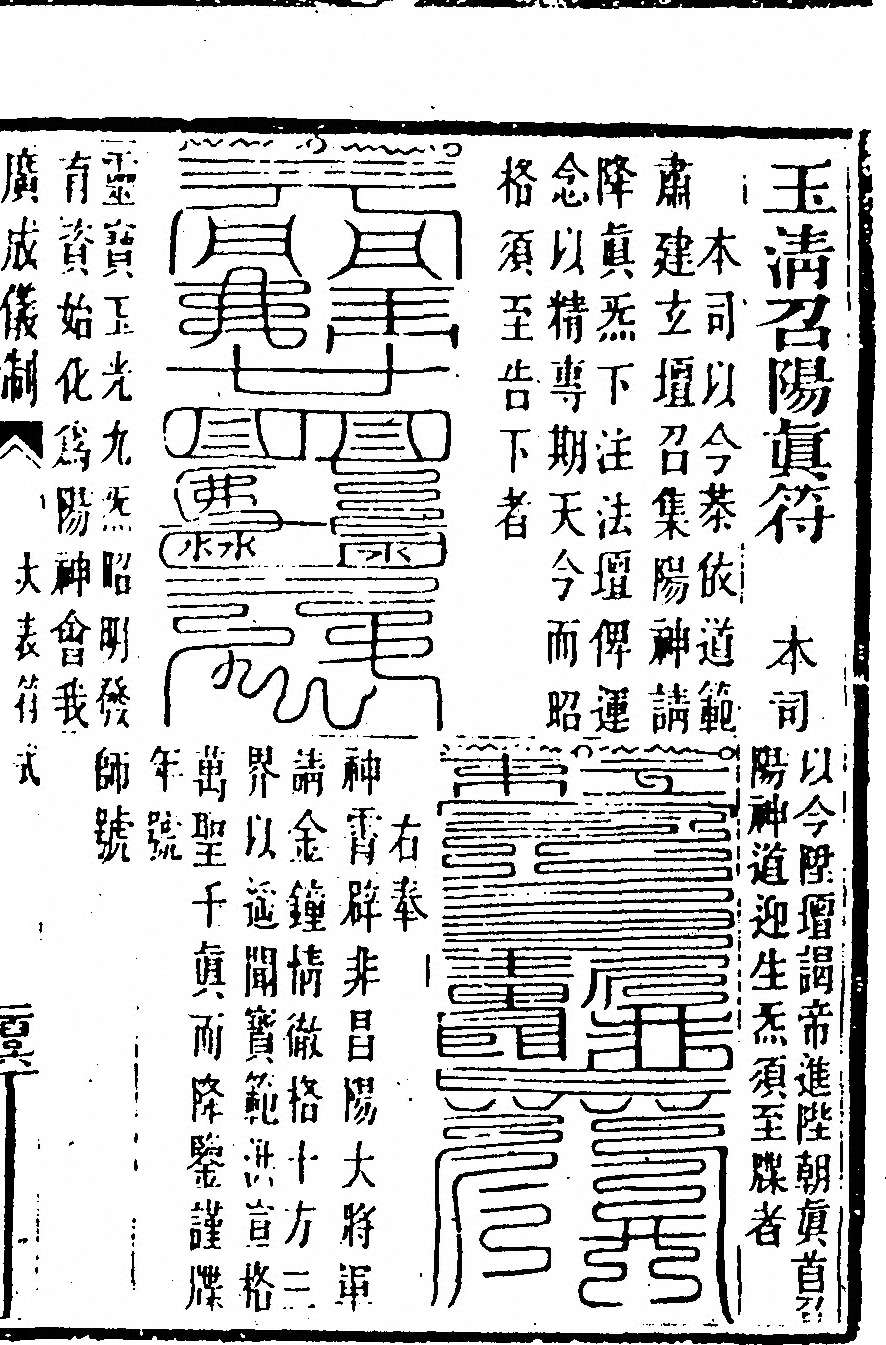 玉清召陽眞符　本司
本司以今恭依道範
肅建玄壇召集陽神請
降眞炁下注法壇俾運
念以精專期天今而昭
格須至告下者
靈寶玉光九炁昭明發
有資始化爲陽神會我
以今陞壇謁帝進陛朝眞首召
陽神道迎生炁須至牒者
右奉
神霄辟非昌陽大將軍
請金鐘情徹格十方三
界以遥聞寶範洪宣格
萬聖千眞而降鑒謹牒
年號
師號
廣成儀制　大表符式